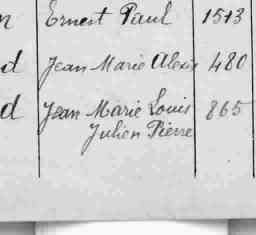 n Ernest Paul 1513
d Jean Marie Alexis 480
d Jean Marie Louis 865
Julien Pierre